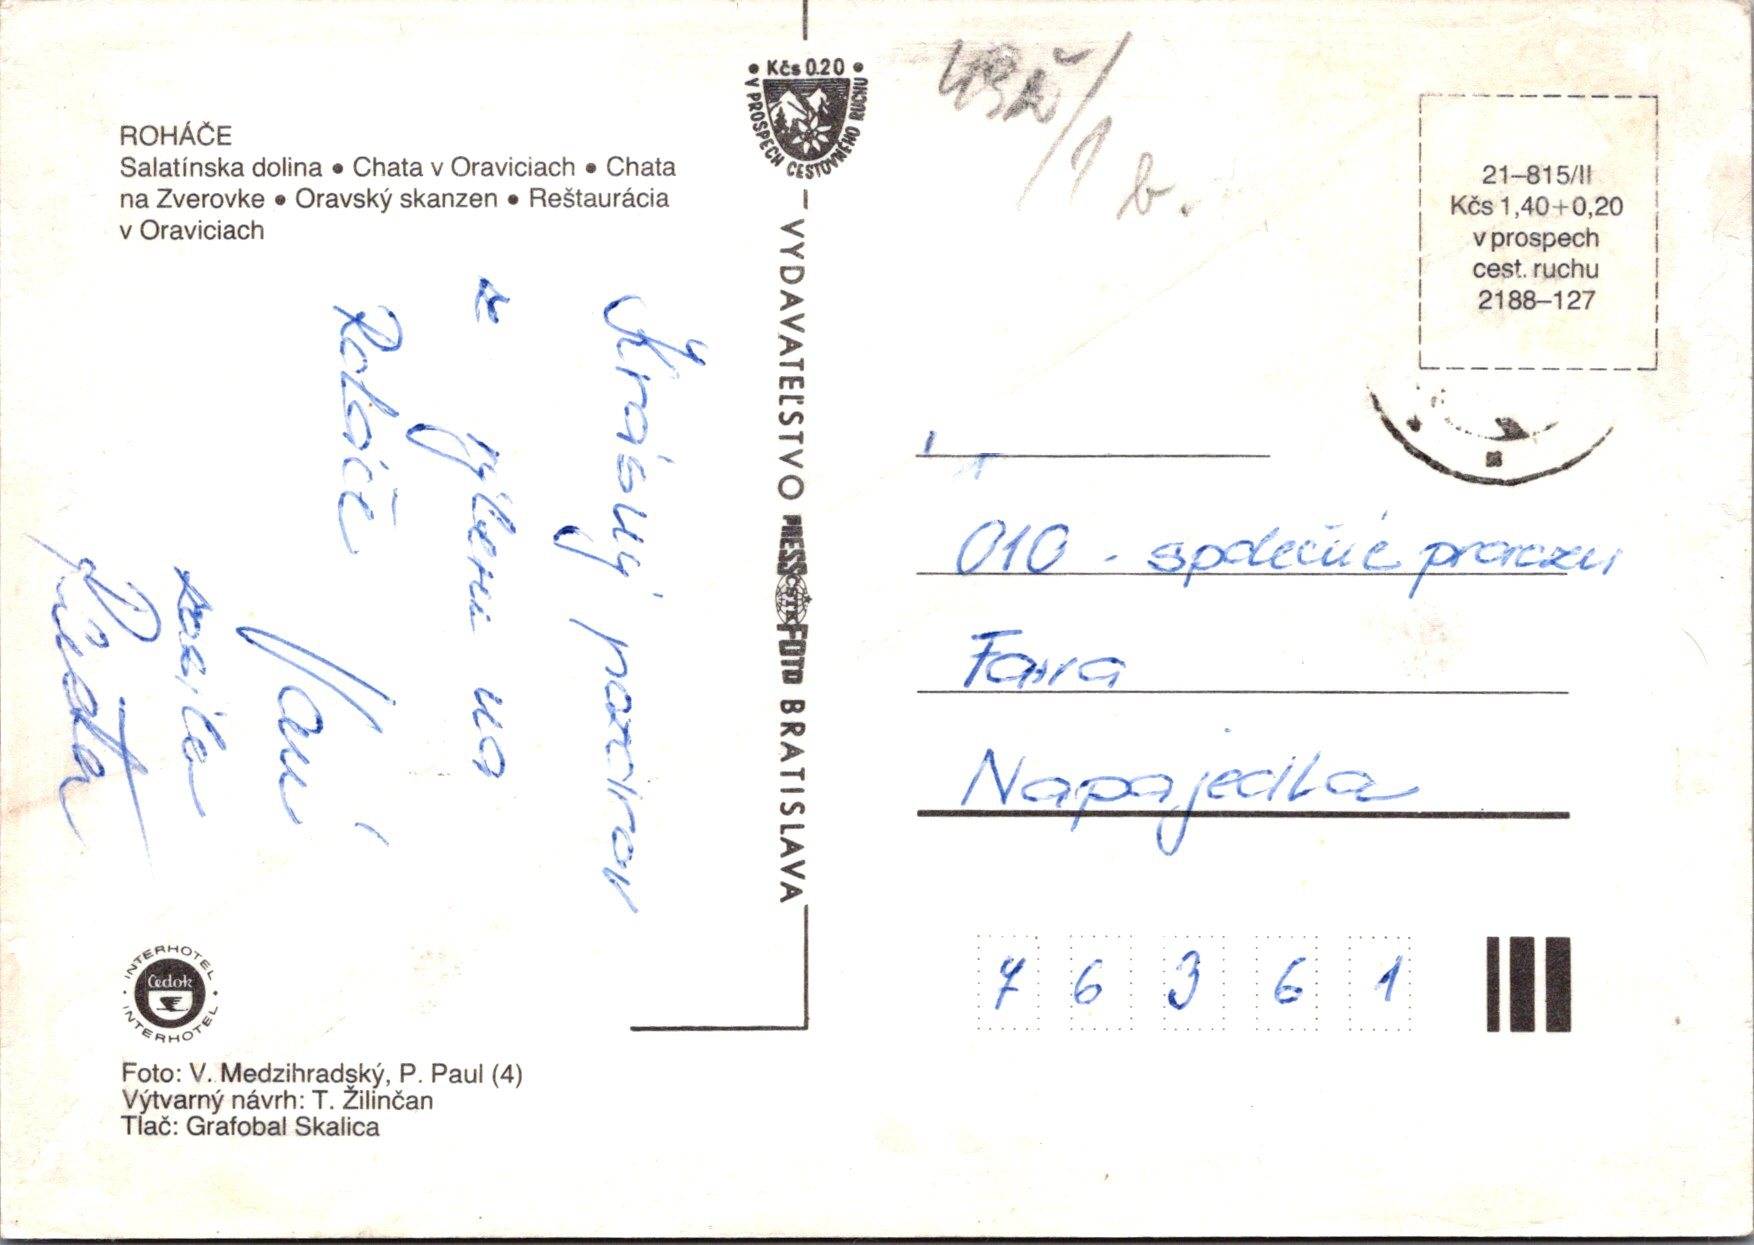 ROHÁČE
Salatínska dolina • Chata v Oraviciach • Chata
na Zverovke • Oravský skanzen • Reštaurácia
v Oraviciach
Krásný pozdrav
z výletu na
Roháče
Vám
posílá
• Kčs 0.20 •
V PROSPECH CESTOVNÉHO RUCHU
VYDAVATEĽSTVO PRESSFOTO BRATISLAVA
ČSTK
1 b.
21–815/II
Kčs 1,40+0,20
v prospech
cest. ruchu
2188–127
010 - společné
Fatra
Napajedla
7 6 3 6 1
INTERHOTEL
Čedok
INTERHOTEL
Foto: V. Medzihradský, P. Paul (4)
Výtvarný návrh: T. Žilinčan
Tlač: Grafobal Skalica